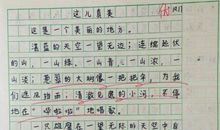 优
这儿真美
这是一个美丽的地方。
湛蓝的天空一望无边；连绵起伏
的山，一山绿，一山青，一山浓，一
山淡；葱茏的大树像一把把伞，为我
们遮风挡雨；清澈见底的小河，不停
地在“哗啦啦”地唱歌。
一只